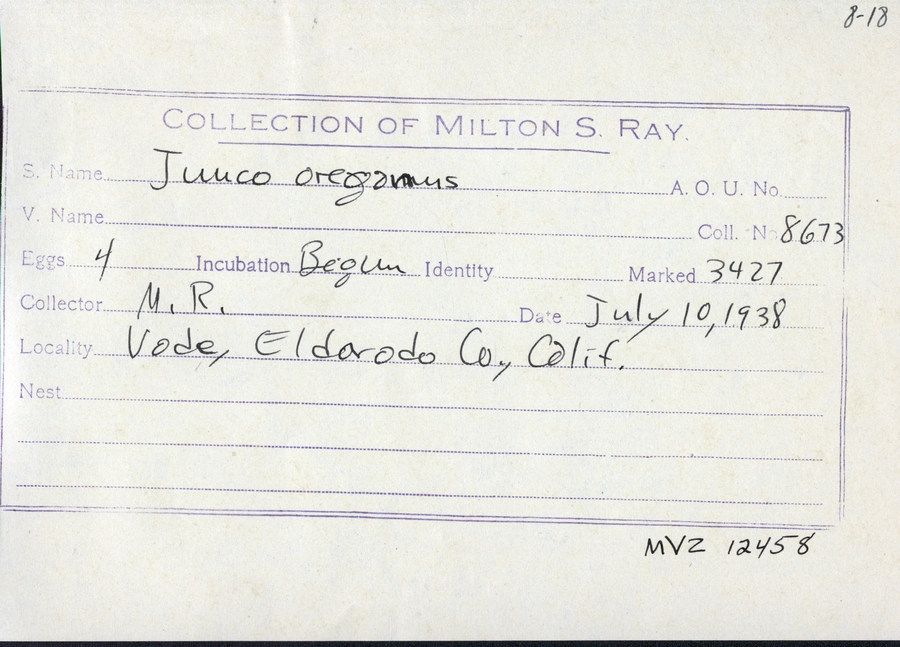 8-18
COLLECTION OF MILTON S. RAY.
S. Name Junco oreganus A. O. U. No.
V. Name Coll. No 8673
Eggs 4 Incubation Begun Identity Marked 3427
Collector M. R. Date July 10, 1938
Locality Vade, Eldorado Co., Calif.
Nest
MVZ 12458